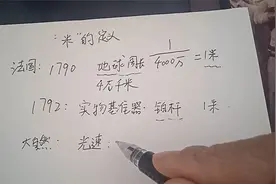 "米"的定义
法国: 1790 地球周长 1/4000万 = 1米
4万千米
1792: 实物基准器: 铂杆 1米.
大自然: 光速: